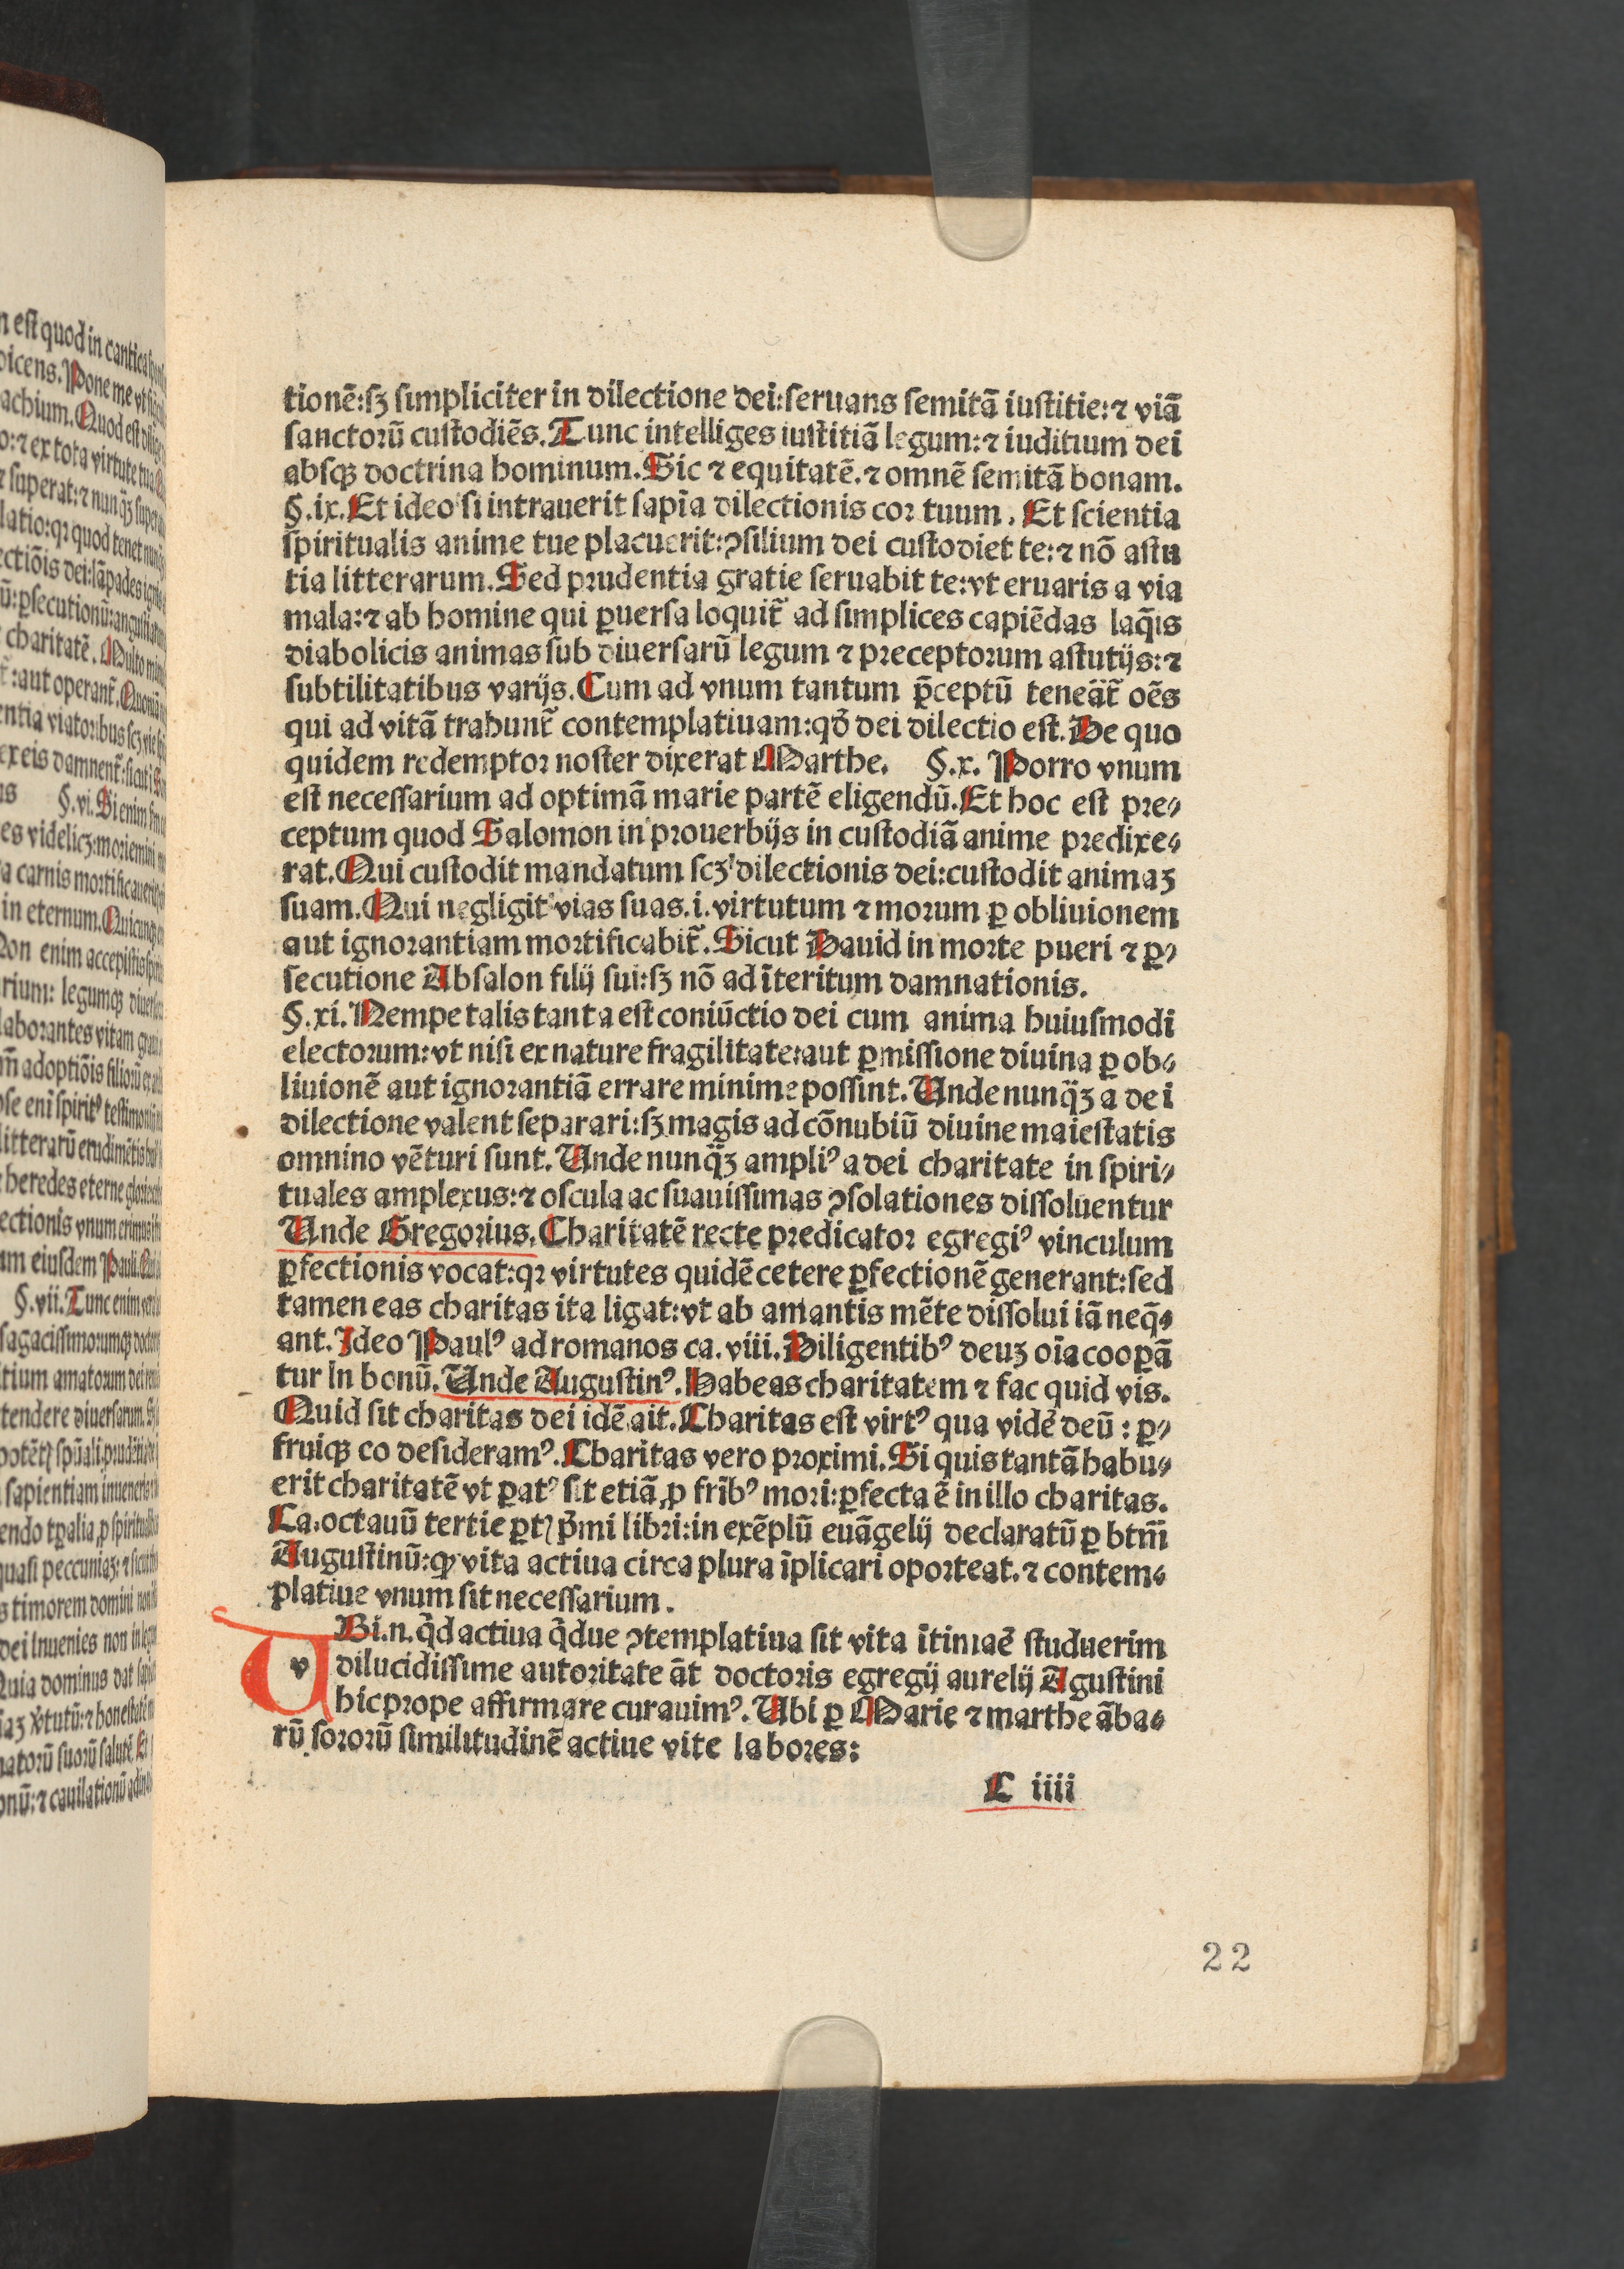 tionē:sꝫ simpliciter in dilectione dei:seruans semitā iustitie:⁊ viā
sanctorū custodiēs. Tunc intelliges iustitiā legum:⁊ iuditium dei
absqꝫ doctrina hominum. Sic ⁊ equitatē. ⁊ omnē semitā bonam.
§.ix. Et ideo si intrauerit sapīa dilectionis cor tuum. Et scientia
spiritualis anime tue placuerit:ꝯsilium dei custodiet te:⁊ nō astu
tia litterarum. Sed prudentia gratie seruabit te:vt eruaris a via
mala:⁊ ab homine qui ꝑuersa loquit̄ ad simplices capiēdas laq̄is
diabolicis animas sub diuersarū legum ⁊ preceptorum astutijs:⁊
subtilitatibus varijs. Cum ad vnum tantum p̄ceptū teneāt̄ oēs
qui ad vitā trahunt̄ contemplatiuam:qđ dei dilectio est. De quo
quidem redemptor noster dixerat Marthe. §.x. Porro vnum
est necessarium ad optimā marie partē eligendū. Et hoc est pre⸗
ceptum quod Salomon in prouerbijs in custodiā anime predixe⸗
rat. Qui custodit mandatum scꝫ dilectionis dei:custodit animaꝫ
suam. Qui negligit vias suas.i.virtutum ⁊ morum ꝑ obliuionem
aut ignorantiam mortificabit̄. Sicut Dauid in morte pueri ⁊ ꝑ⸗
secutione Absalon filij sui:sꝫ nō ad īteritum damnationis.
§.xi. Nempe talis tanta est coniūctio dei cum anima huiusmodi
electorum:vt nisi ex nature fragilitate:aut ꝑmissione diuina ꝑ ob⸗
liuionē aut ignorantiā errare minime possint. Unde nunq̄ꝫ a dei
dilectione valent separari:sꝫ magis ad cōnubiū diuine maiestatis
omnino vēturi sunt. Unde nunq̄ꝫ ampliꝰ a dei charitate in spiri⸗
tuales amplexus:⁊ oscula ac suauissimas ꝯsolationes dissoluentur
Unde Gregorius. Charitatē recte predicator egregiꝰ vinculum
ꝑfectionis vocat:qꝛ virtutes quidē cetere ꝑfectionē generant:sed
tamen eas charitas ita ligat:vt ab amantis mēte dissolui iā neq̄⸗
ant. Ideo Paulꝰ ad romanos ca.viii. Diligentibꝰ deuꝫ oīa cooꝑā
tur in bonū. Unde Augustinꝰ. Habeas charitatem ⁊ fac quid vis.
Quid sit charitas dei idē ait. Charitas est virtꝰ qua vidē deū:ꝑ⸗
fruiqꝫ eo desideramꝰ. Charitas vero proximi. Si quis tantā habu⸗
erit charitatē vt ꝑatꝰ sit etiā ꝓ frībꝰ mori:ꝑfecta ē in illo charitas.
Ca.octauū tertie ꝑtꝭ p̄mi libri:in exēplū euāgelij declaratū ꝑ btm̄
Augustinū:ꝙ vita actiua circa plura īplicari oporteat.⁊ contem⸗
platiue vnum sit necessarium.
v Bi.n.q̄d actiua q̄due ꝯtemplatiua sit vita ītimaē studuerim
dilucidissime autoritate āt doctoris egregij aurelij Āgustini
hic prope affirmare curauimꝰ. Ubi ꝑ Marie ⁊ marthe āba⸗
rū sororū similitudinē actiue vite labores:
C iiii
22